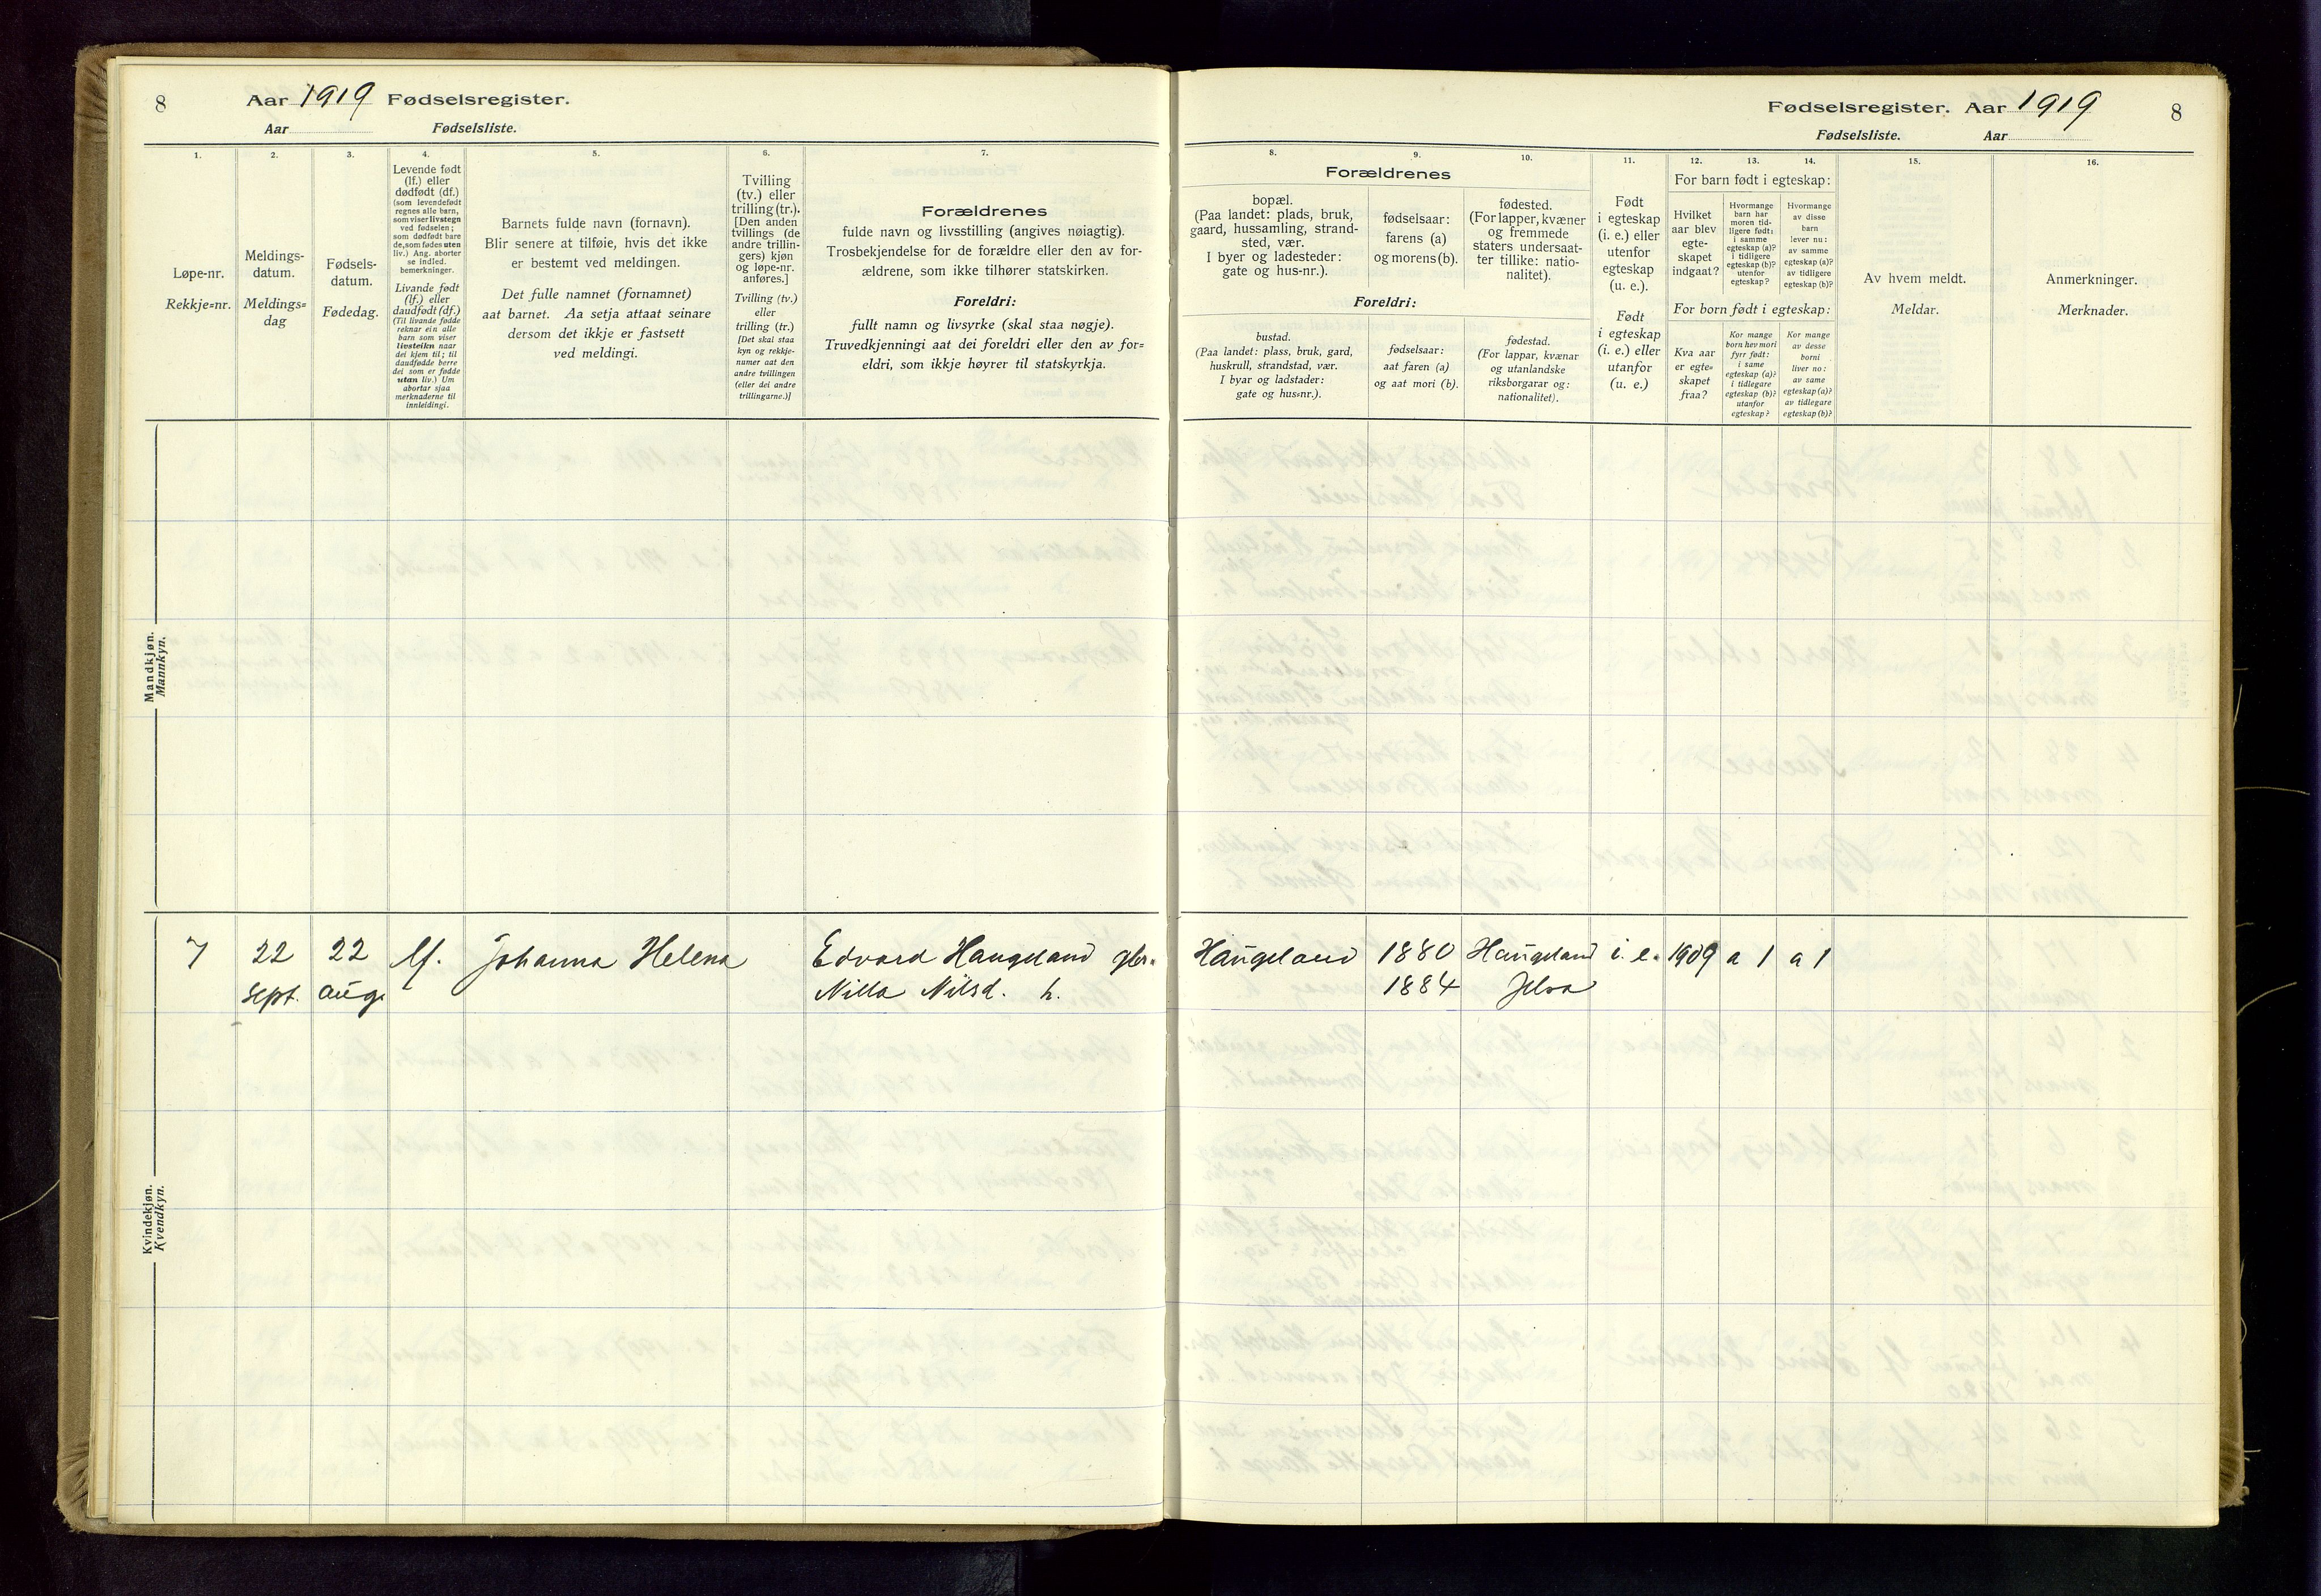 8
Aar 1919 Fødselsregister.
Aar Fødselsliste.
1.
2.
3.
4.
5.
6.
7.
Løpe-nr.
Rekkje=nr.
Meldings-
datum.
Meldings=
dag
Fødsels-
datum.
Fødedag.
Levende født
(lf.) eller
dødfødt (df.)
(som levendefødt
regnes alle barn,
som viser livstegn
ved fødselen;
som dødfødt bare
de, som fødes uten
liv.) Ang. aborter
se indled.
bemerkninger.
Livande født
(lf.) eller
daudfødt (df.)
(Til livande fødde
reknar ein alle
barn som viser
livsteikn naar
dei kjem til; til
daudfødde berre
dei som er fødde
utan liv.) Um
abortar sjaa
merknaderne til
innleidingi.
Barnets fulde navn (fornavn).
Blir senere at tilføie, hvis det ikke
er bestemt ved meldingen.
Det fulle namnet (fornamnet)
aat barnet. Aa setja attaat seinare
dersom det ikkje er fastsett
ved meldingi.
Tvilling
(tv.) eller
trilling (tr.).
[Den anden
tvillings (de
andre trillin-
gers) kjøn
og løpe-nr.
anføres.]
Tvilling (tv.)
eller
trilling (tr.)
[Det skal staa
kyn og rekkje-
numer aat den
andre tvillingen
(eller dei andre
trillingarne.)]
Forældrenes
fulde navn og livsstilling (angives nøiagtig).
Trosbekjendelse for de forældre eller den av for-
ældrene, som ikke tilhører statskirken.
Foreldri:
fullt namn og livsyrke (skal staa nøgje).
Truvedkjenningi aat dei foreldri eller den av for=
eldri, som ikkje høyrer til statskyrkja.
Mandkjøn.
Mannkyn.
7 22 22 lf. Johanna Helena Edvard Haugeland gbr.
sept. aug. Nilla Nilsd. h.
Kvindekjøn.
Kvendkyn.
Fødselsregister. Aar 1919 8
Fødselsliste. Aar
8.
9.
10.
11.
12.
13.
14.
15.
16.
Forældrenes
bopæl.
(Paa landet: plads, bruk,
gaard, hussamling, strand-
sted, vær.
I byer og ladesteder:
gate og hus-nr.).
fødselsaar:
farens (a)
og morens (b).
fødested.
(For lapper, kvæner
og fremmede
staters undersaat-
ter tillike: natio-
nalitet).
Foreldri:
bustad.
(Paa landet: plass, bruk, gard,
huskrull, strandstad, vær.
I byar og ladstader:
gate og hus=nr.).
fødselsaar:
aat faren (a)
og aat mori (b).
fødestad.
(For lappar, kvænar
og utanlandske
riksborgarar og:
nationalitet).
Født
i egteskap
(i. e.) eller
utenfor
egteskap
(u. e.).
Født
i egteskap
(i. e.) eller
utanfor
(u. e.)
For barn født i egteskap:
Hvilket
aar blev
egte-
skapet
indgaat?
Hvormange
barn har
moren tid-
ligere født:
i samme
egteskap (a)?
i tidligere
egteskap (b)?
utenfor
egteskap?
Hvormange
av disse
barn
lever nu:
av samme
egteskap (a)?
av tidligere
egteskap (b)?
For born født i egteskap:
Kva aar
er egte=
skapet
fraa?
Kor mange
born hev mori
fyrr født:
i same
egteskap (a)?
i tidlegare
egteskap (b)?
utanfor
egteskap?
Kor mange
av desse
borni
liver no:
av same
egteskap (a)?
av tidlegare
egteskap (b)?
Av hvem meldt.
Meldar.
Anmerkninger.
Merknader.
Haugeland 1880 Haugeland i. e. 1909 a 1 a 1
1884 Jelsa